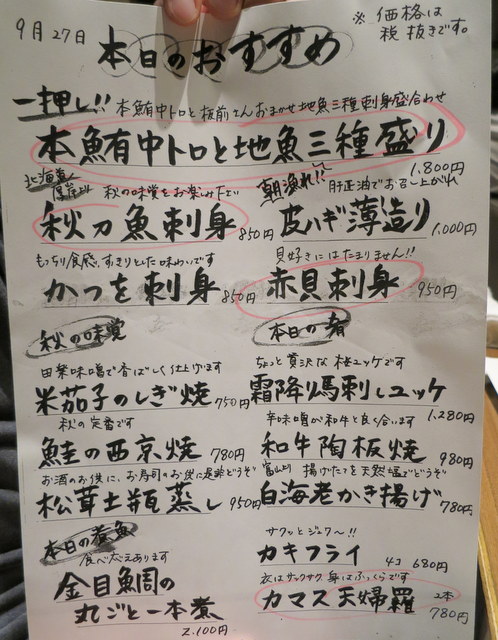 9月27日
※価格は
税抜きです。
本日のおすすめ
一押し!!
本鮪中トロと板前さんおまかせ地魚三種刺身盛合わせ
本鮪中トロと地魚三種盛り
1.800円
北海道
厚岸より
秋の味覚をお楽み下さい
秋刀魚刺身
850円
朝漁れ!!
肝正油でお召し上がれ
皮ハギ薄造り
1,000円
もっちり食感、すっきりとした味わいです
かつを刺身
850円
貝好きにはたまりません!!
赤貝刺身
950円
秋の味覚
田楽味噌で香ばしく仕上げます
米茄子のしぎ焼
750円
秋の定番です
鮭の西京焼
780円
お酒のお供に、お寿司のお供に是非どうぞ
松茸土瓶蒸し
950円
本日の煮魚
食べ応えあります
金目魚周の
丸ごと一本煮
2.100円
本日の肴
ちょっと贅沢な桜ユッケです
霜降り馬刺しユッケ
1.280円
辛味噌が和牛と良く合います
和牛陶板焼
980円
富山より
揚げたてを天然塩でどうぞ
白海老かき揚げ
780円
サクッとジュワ〜!!
カキフライ
4コ 680円
衣はサックサク 身はふっくらです
カマス天婦羅
2本
780円